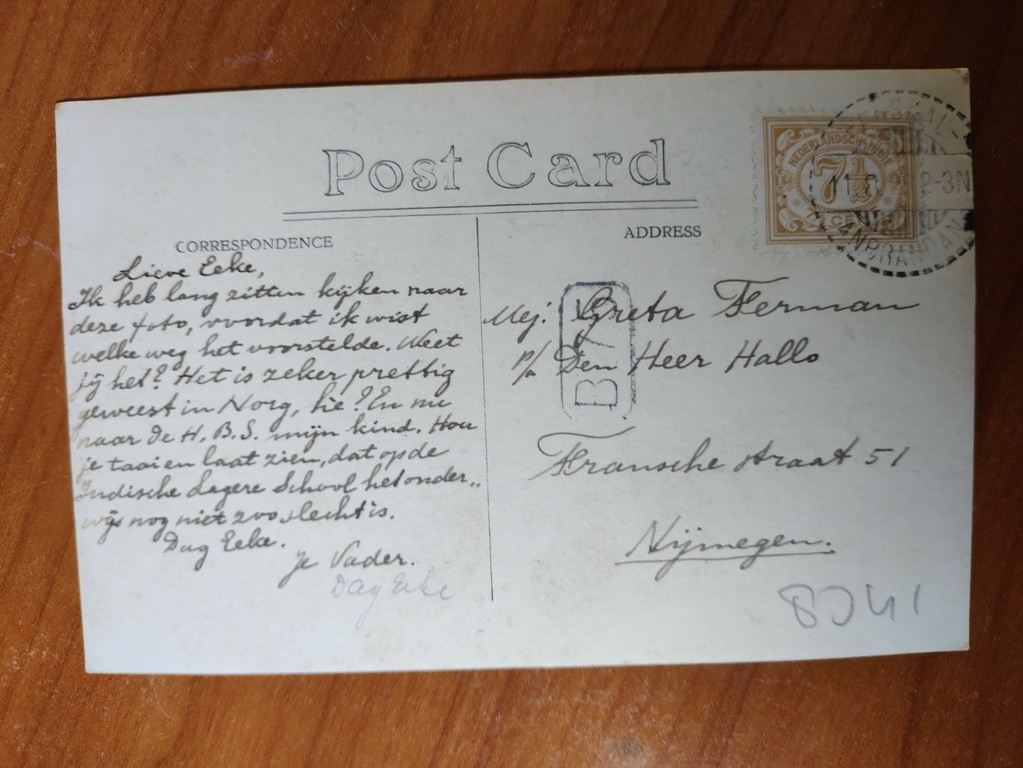 Post Card
CORRESPONDENCE
ADDRESS
NEDERLANDSCH-INDIE
7½
CENT
2-3N
B 7 E
Lieve Eeke,
Ik heb lang zitten kijken naar
deze foto, voordat ik wist
welke weg het voorstelde. Weet
jij het? Het is zeker prettig
geweest in Norg, hie? En nu
naar de H.B.S. mijn kind. Hou
je taai en laat zien, dat op de
Indische Lagere School het onder„
wijs nog niet zoo slecht is.
Dag Eeke.
Je Vader.
Dag Eeke
Mej. Greta Ferman
p/a Den Heer Hallo
Fransche straat 51
Nijmegen.